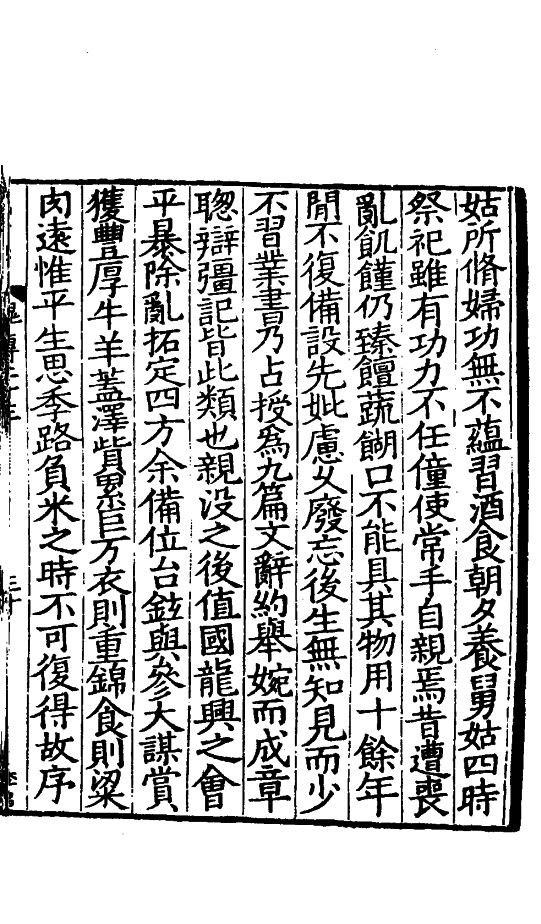 姑所脩婦功無不蘊習酒食朝夕養舅姑四時
祭祀雖有功力不任僮使常手自親焉昔遭喪
亂飢饉仍臻饘蔬餬口不能具其物用十餘年
閒不復備設先妣慮久廢忘後生無知見而少
不習業書乃占授爲九篇文辭約舉婉而成章
聦辯彊記皆此類也親没之後值國龍興之會
平暴除亂拓定四方余備位台鉉與參大謀賞
獲豐厚牛羊蓋澤貲累巨万衣則重錦食則粱
肉遠惟平生思季路負米之時不可復得故序